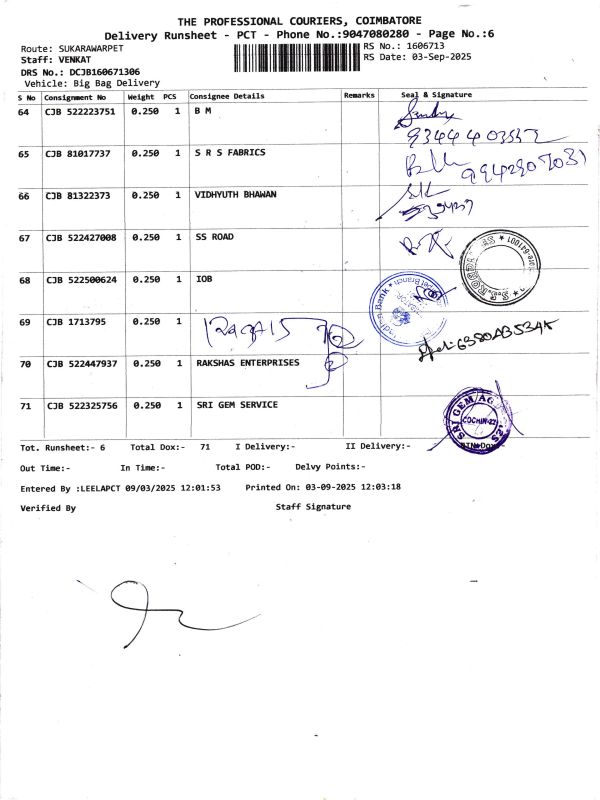 THE PROFESSIONAL COURIERS, COIMBATORE
Delivery Runsheet - PCT - Phone No.:9047080280 - Page No.:6
Route: SUKARAWARPET
RS No.: 1606713
Staff: VENKAT
RS Date: 03-Sep-2025
DRS No.: DCJB160671306
Vehicle: Big Bag Delivery
S No Consignment No Weight PCS Consignee Details Remarks Seal & Signature
64 CJB 522223751 0.250 1 B M
65 CJB 81017737 0.250 1 S R S FABRICS
66 CJB 81322373 0.250 1 VIDHYUTH BHAWAN
67 CJB 522427008 0.250 1 SS ROAD
68 CJB 522500624 0.250 1 IOB
69 CJB 1713795 0.250 1
70 CJB 522447937 0.250 1 RAKSHAS ENTERPRISES
71 CJB 522325756 0.250 1 SRI GEM SERVICE
SRI GEM AG
COCHIN-22
Tot. Runsheet:- 6 Total Dox:- 71 I Delivery:- II Delivery:-
Out Time:- In Time:- Total POD:- Delvy Points:-
Entered By :LEELAPCT 09/03/2025 12:01:53 Printed On: 03-09-2025 12:03:18
Verified By Staff Signature